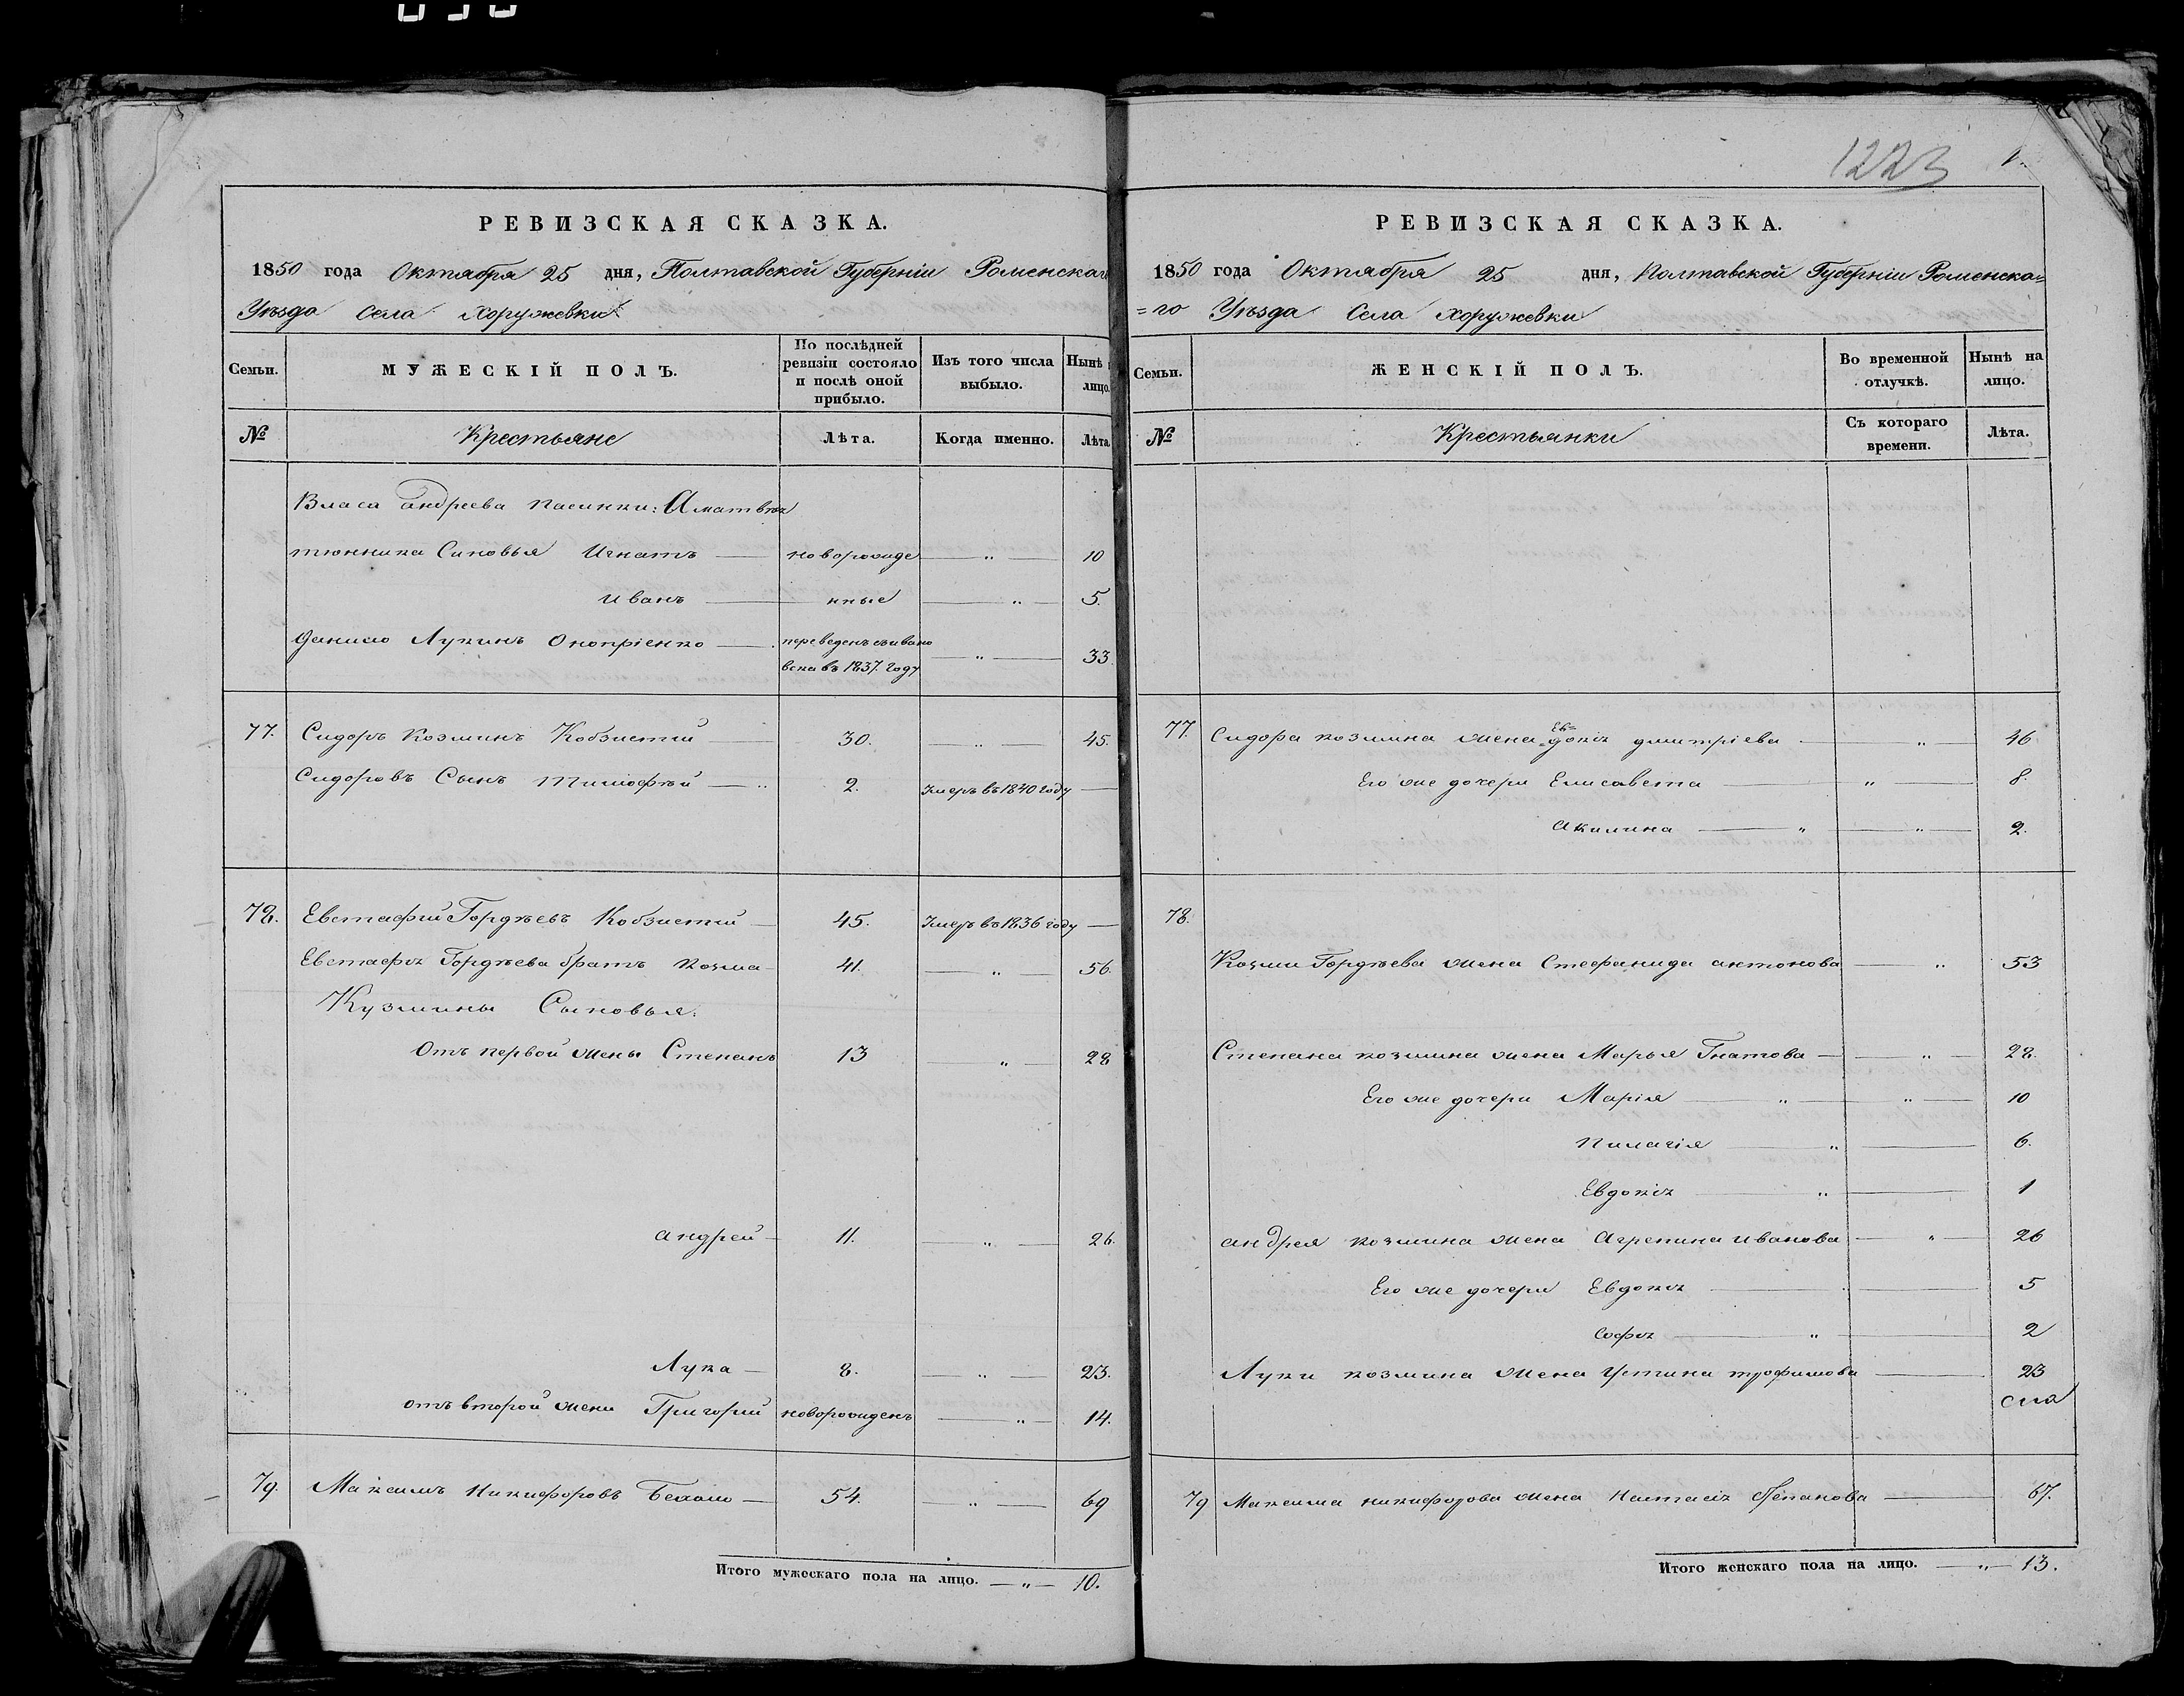 1223
РЕВИЗСКАЯ СКАЗКА.
1850 года Октября 25 дня, Полтавской Губерніи Роменскаг
Уѣзда Села Хоружевки
Семьи. МУЖЕСКІЙ ПОЛЪ. По послѣдней ревизіи состояло и послѣ оной прибыло. Изъ того числа выбыло. Нынѣ лицо.
№ Крестьяне Лѣта. Когда именно. Лѣта
Власа андреева пасинки:
тюнника Синовья Игнатъ — новорожде — „ — 10
иванъ — нные — „ — 5.
Данило Лукинъ Онопріенко — переведенъ съ ивано
вска въ 1837. году — „ — 33.
77. Сидоръ Козминъ Кобзистий — 30. — „ — 45.
Сидоровъ Сынъ Тимофѣй — „ 2. Умеръ въ 1840 году —
78. Евстафий Гордѣевъ Кобзистий — 45. Умеръ въ 1836 году —
Евстафіх Гордѣева братъ Козма — 41. — „ — 56.
Кузмины Сыновья:
Отъ первой жены Степанъ 13 — „ — 28
андрей — 11. — „ — 26.
Лука — 8. — „ — 23.
отъ второй жени Григорий новорожденъ — „ — 14.
79. Максимъ Никифоровъ — 54. — „ — 69
Итого мужескаго пола на лицо. — „ — 10.
РЕВИЗСКАЯ СКАЗКА.
1850 года Октября 25 дня, Полтавской Губерніи Роменска=
=го Уѣзда Села Хоружевки
Семьи. ЖЕНСКІЙ ПОЛЪ. Во временной отлучкѣ. Нынѣ на лицо.
№ Крестьянки Съ котораго времени. Лѣта.
77. Сидора козмина жена Ев=докіх дмитріева — „ — 46
Его же дочери Елисавета — „ — 8.
Акилина — „ — „ — 2.
78.
Козми Гордѣева жена Стефанида антонова — „ 53
Степана козмина жена Марья Гнатова — „ — 28.
Его же дочери Марія — „ — „ — 10
Пилагія — „ — 6.
Евдокіх — „ — 1
андрея козмина жена Агрепина иванова — „ — 26
Его же дочери Евдокіх — 5
Софіх — „ — 2
Луки козмина жена Устина трофимова — 23
79 Максима никифорова жена Настасіх Степанова — 67.
Итого женскаго пола на лицо. — „ — 13.